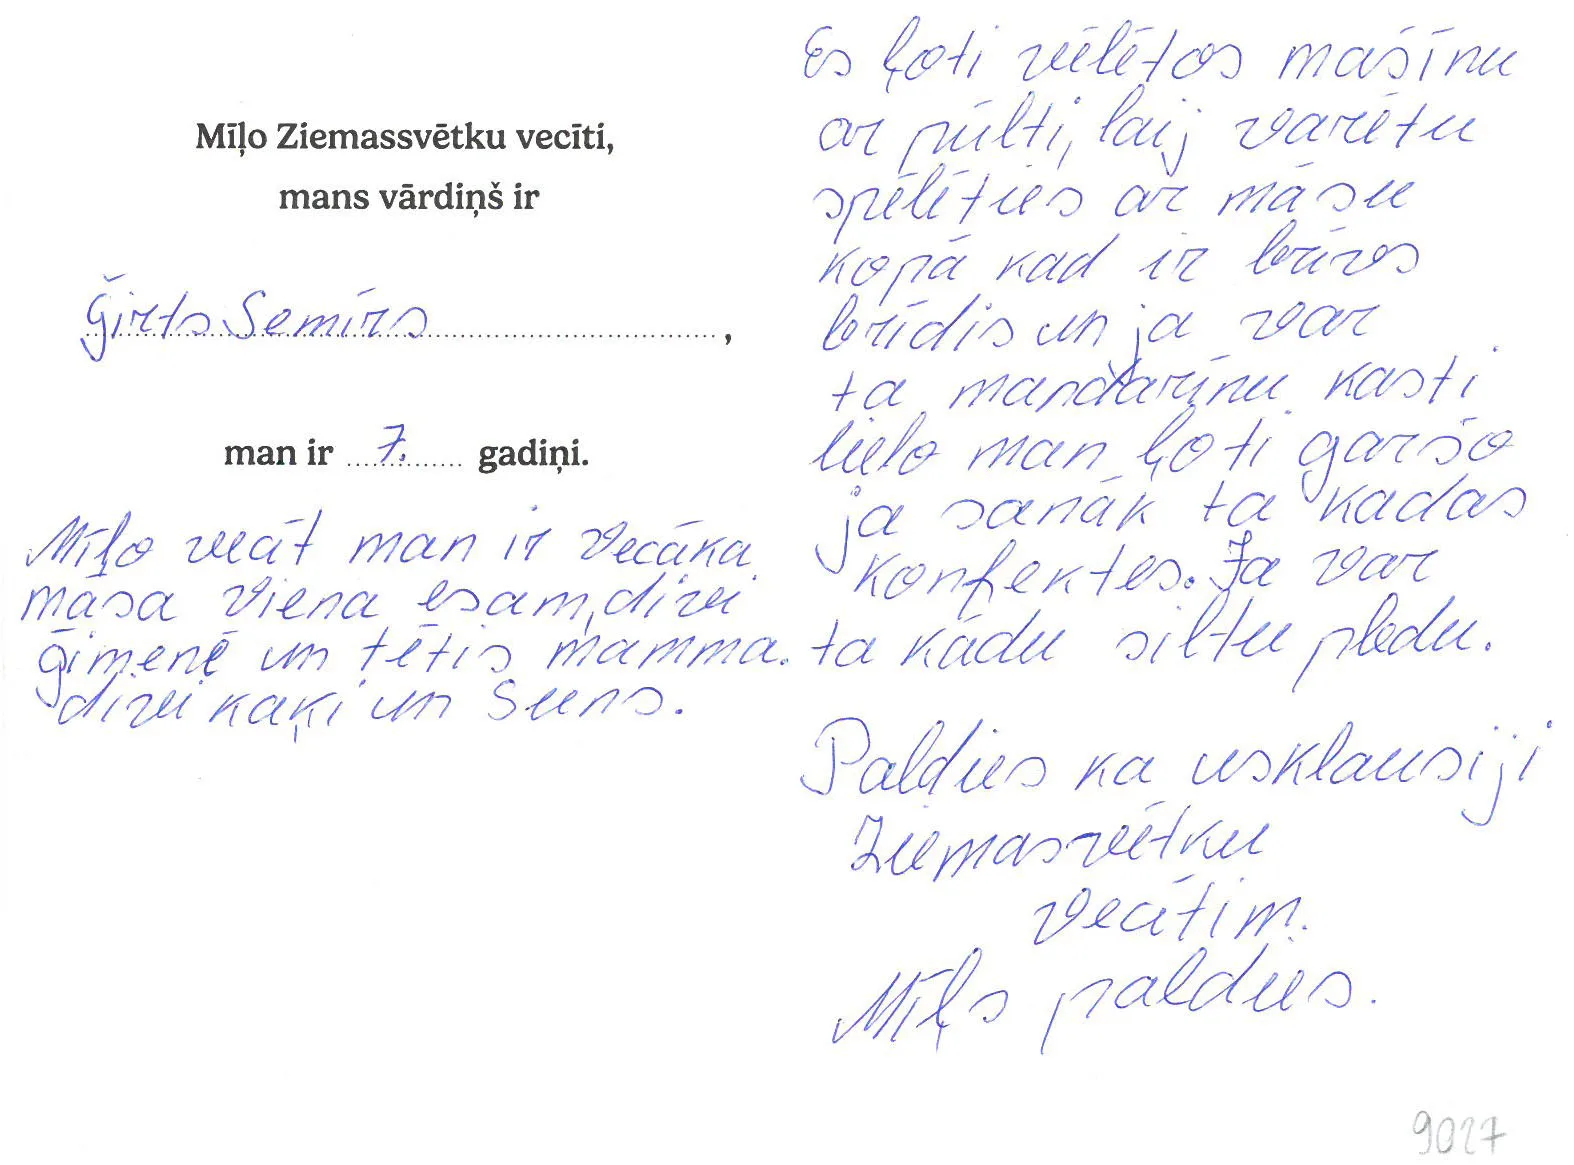 Mīļo Ziemassvētku vecīti,
mans vārdiņš ir
Ģirts Semīrs,
man ir 7. gadiņi.
Mīļo vecīt man ir vecāka
māsa viena esam divi
ģimenē un tētis mamma.
divi kaķi un suns.
Es ļoti vēlētos mašīnu
ar pūlti, laij varētu
spēlēties ar māsu
kopā kad ir brīvs
brīdis un ja var
ta mandarīnu kasti
lielo man ļoti garšo
ja sanāk ta kādas
konfektes. Ja var
ta kādu siltu pledu.
Paldies ka usklausīji
Ziemasvētku
vecītim.
Mīļš paldies.
9027